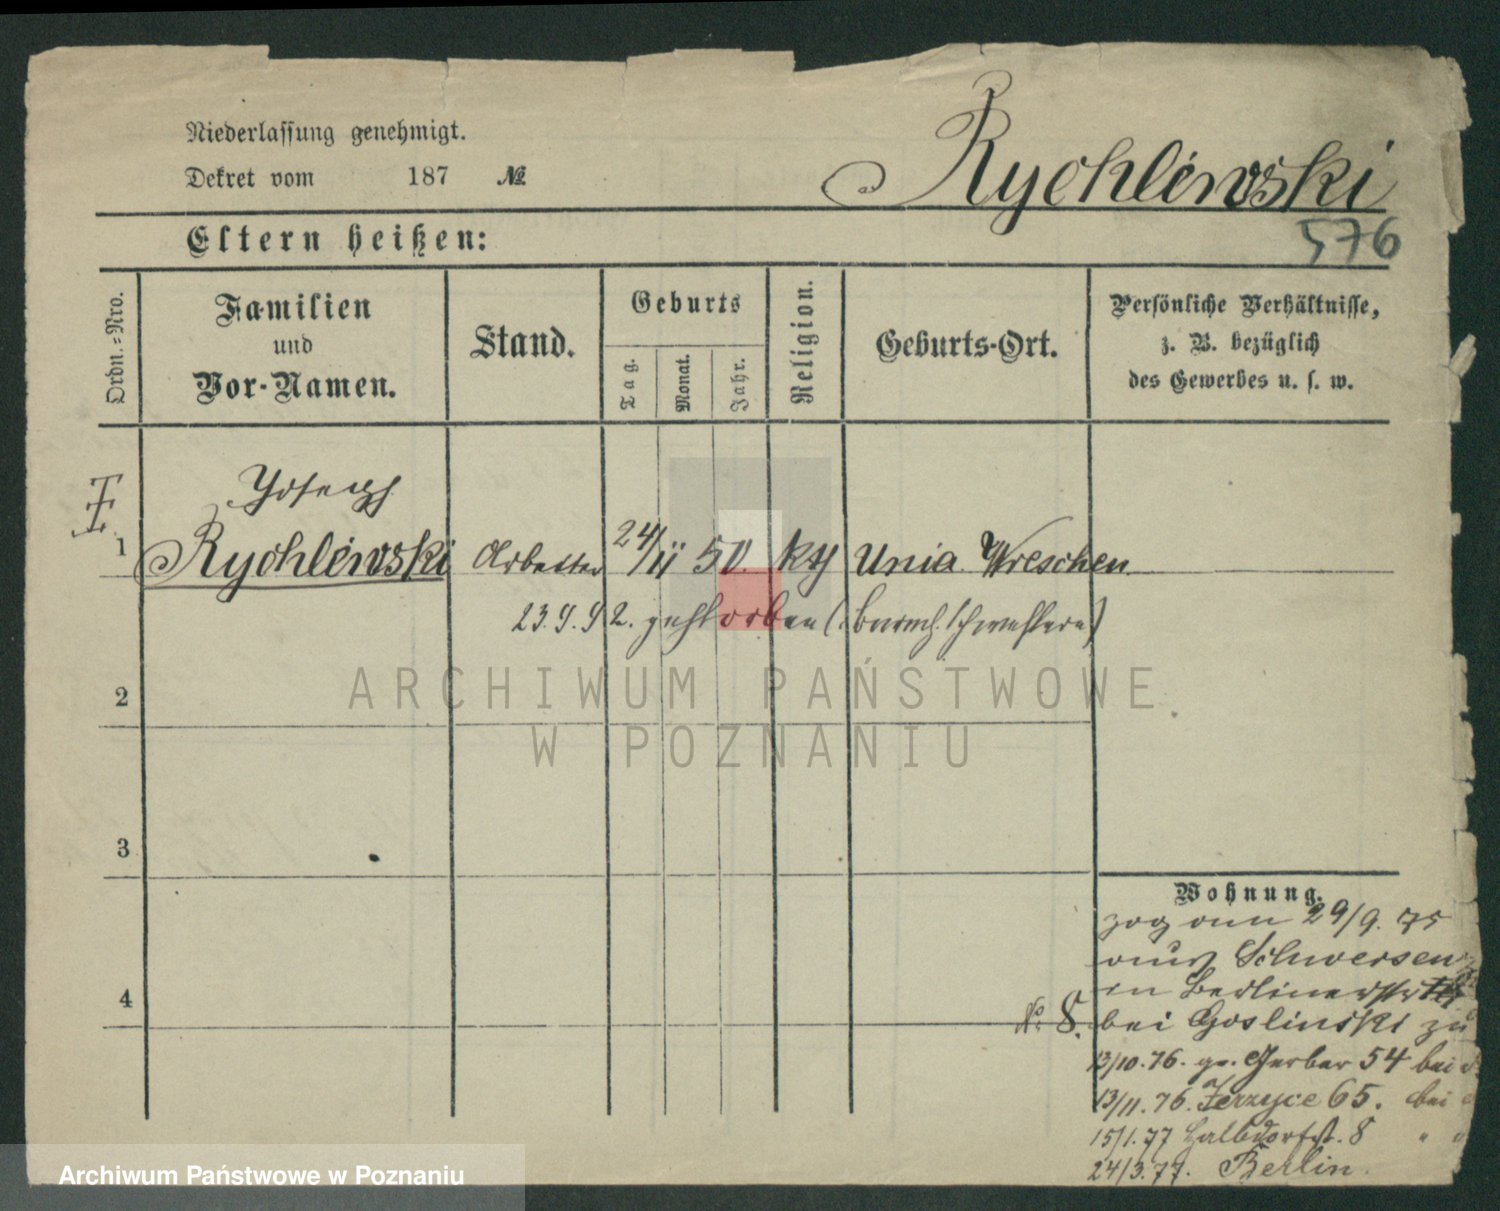 Niederlassung genehmigt.
Dekret vom 187 №
Rychlewski
576
Eltern heißen:
Ordn.-Nro.
Familien
und
Vor-Namen.
Stand.
Geburts
Tag.
Monat.
Jahr.
Religion.
Geburts-Ort.
Persönliche Verhältnisse,
z. B. bezüglich
des Gewerbes u. s. w.
Joseph
1 Rychlewski Arbeiter 24/11 50. kth Unia Wreschen
23.9.92. gestorben (barmh. Schwestern)
ARCHIWUM PAŃSTWOWE
W POZNANIU
2
3
4
Wohnung.
zog am 29/9. 75
aus Schwersenz
in Berlinerstr
No 8. bei Goslinski zu
13/10. 76. gr. Gerber 54 bei
13/11. 76. Jerzyce 65. bei
15/1. 77 Halbdorfst. 8 "
24/3. 77. Berlin.
Archiwum Państwowe w Poznaniu